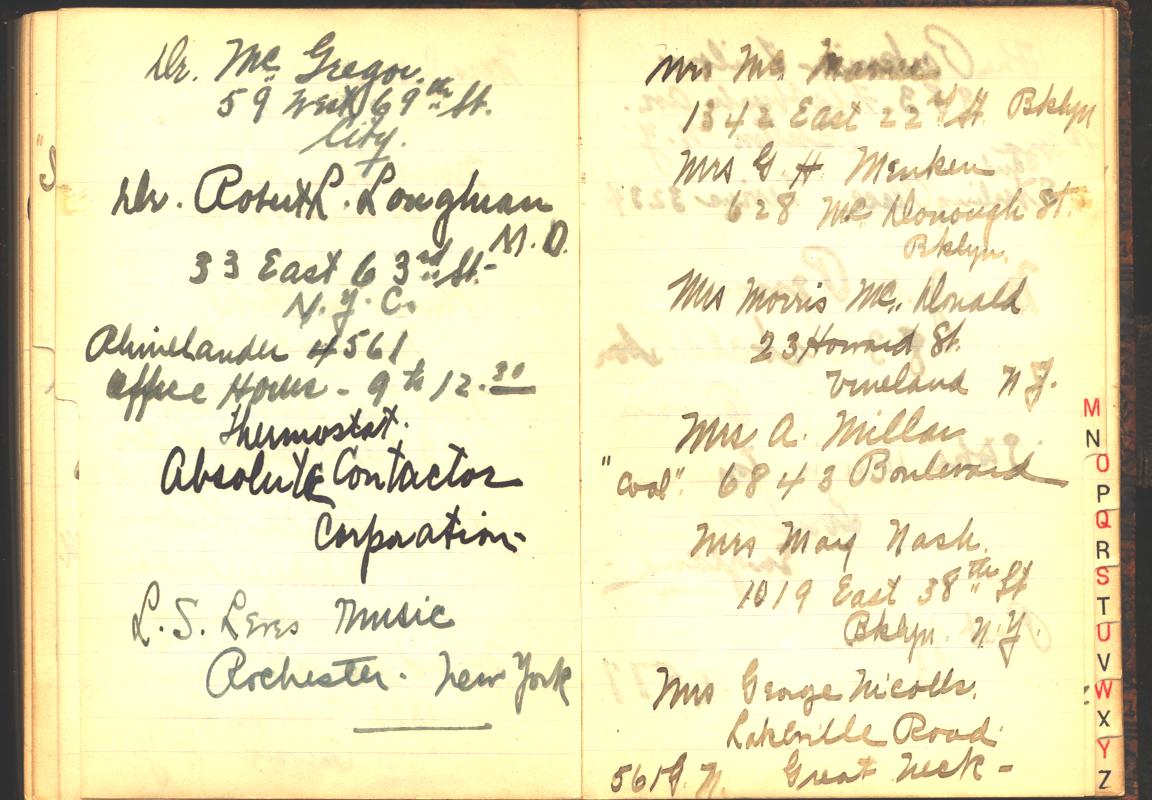 Dr. Mc Gregor.
59 West 69th St.
City.
Dr. Robert L. Loughran
M.D.
33 East 63rd St.
N.Y.C.
Rhinelander 4561
Office Hours - 9 to 12.30
Thermostat.
Absolute Contactor
Corporation
L.S. Leves Music
Rochester. New York
Mrs Mc
1342 East 22nd St. Bklyn
Mrs G H Menken
628 Mc Donough St.
Bklyn.
Mrs Morris Mc. Donald
23 Howard St.
Vineland N.J.
Mrs A. Millar
"Coal". 6843 Boulevard
Mrs May Nash.
1019 East 38th St
Bklyn. N.Y.
Mrs George Nicolls.
Lakeville Road
561 G. N. Great Neck -
"S
M
N
O
P
Q
R
S
T
U
V
W
X
Y
Z